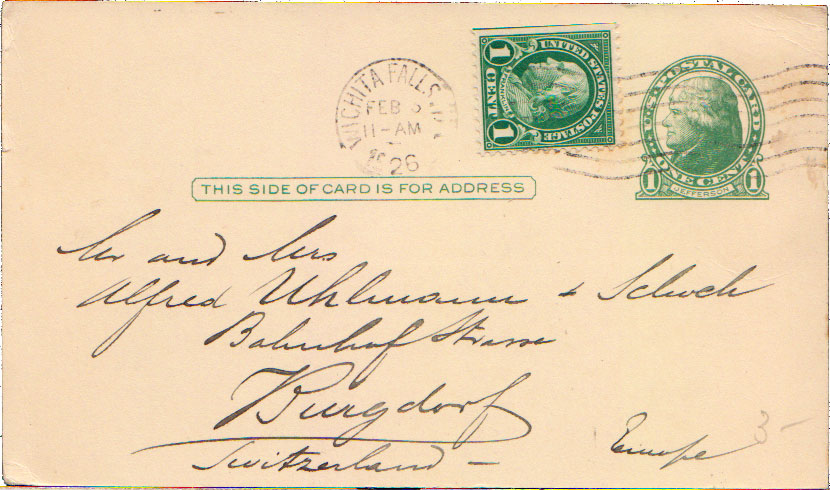 WICHITA FALLS
FEB
11-AM
26
UNITED STATES POSTAGE
1 CENT 1
U.S. POSTAL CARD
1 ONE CENT 1
JEFFERSON
THIS SIDE OF CARD IS FOR ADDRESS
Mr and Mrs
Alfred Uhlmann + Schoch
Bahnhof Strasse
Burgdorf
Switzerland –
Europe
3-